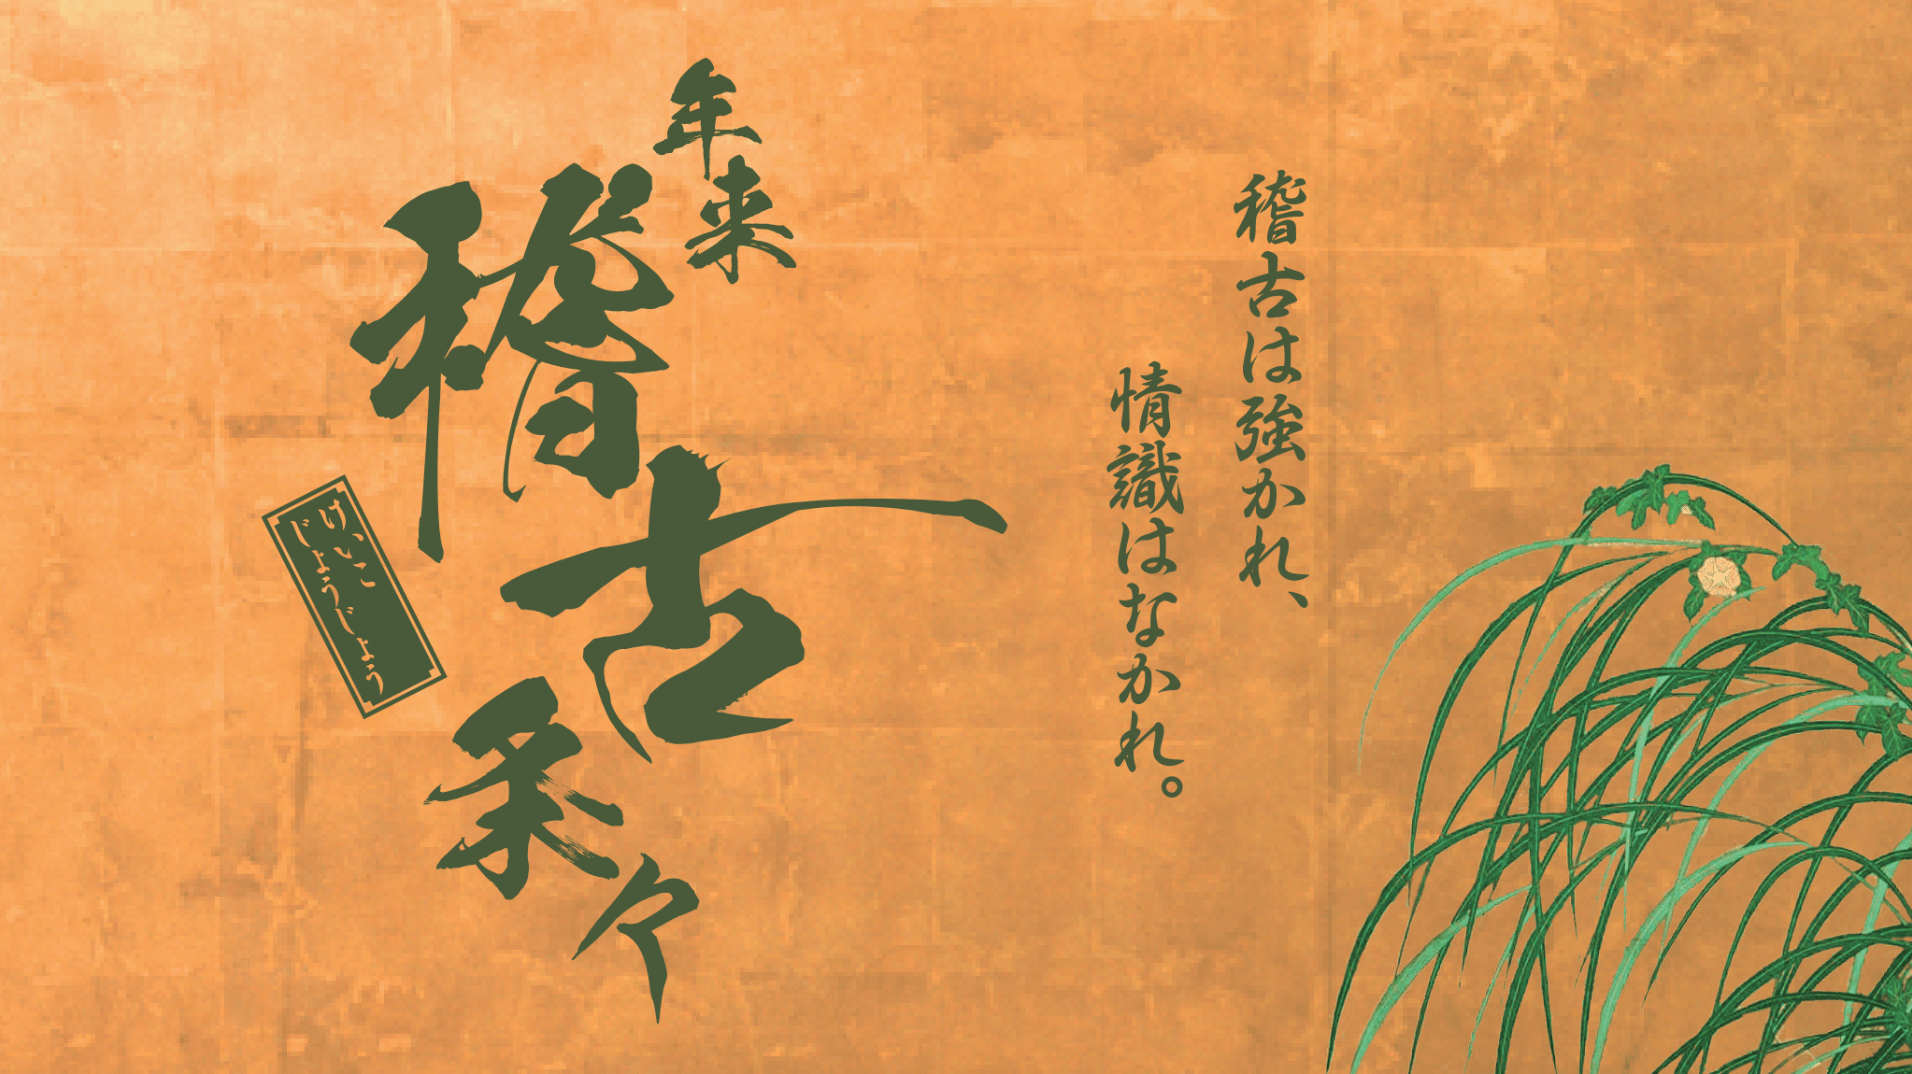 稽古は強かれ、
情識はなかれ。
年来
稽古
条々
けいこ
じょうじょう